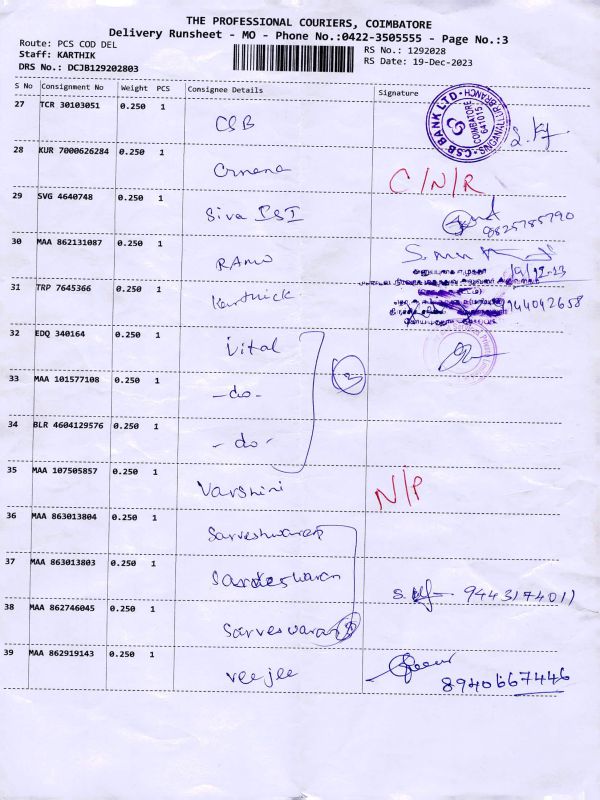 THE PROFESSIONAL COURIERS, COIMBATORE
Delivery Runsheet - MO - Phone No.:0422-3505555 - Page No.:3
Route: PCS COD DEL
Staff: KARTHIK
DRS No.: DCJB129202803
RS No.: 1292028
RS Date: 19-Dec-2023
S No Consignment No Weight PCS Consignee Details Signature
27 TCR 30103051 0.250 1 CSB
CSB BANK LTD. SINGANALLUR BRANCH COIMBATORE 641015
28 KUR 7000626284 0.250 1 C/N/R
29 SVG 4640748 0.250 1 Siva PSI 8825785790
30 MAA 862131087 0.250 1 RAMU
31 TRP 7645366 0.250 1 Karthick 9944042658
32 EDQ 340164 0.250 1 Vital
33 MAA 101577108 0.250 1 -do- 3
34 BLR 4604129576 0.250 1 -do-
35 MAA 107505857 0.250 1 Varshini N/P
36 MAA 863013804 0.250 1 Sarveshwaran
37 MAA 863013803 0.250 1 Sarveshwaran 9443174011
38 MAA 862746045 0.250 1 Sarveswaran 3
39 MAA 862919143 0.250 1 Veejee 8940667446